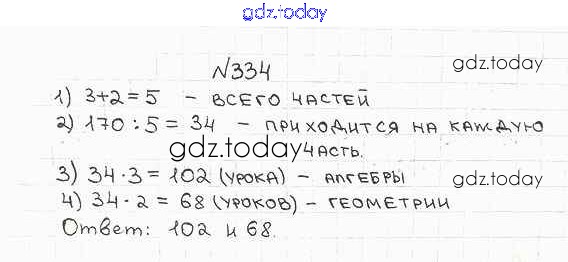 gdz.today
№334
gdz.today
1) 3+2=5 - ВСЕГО ЧАСТЕЙ
2) 170 : 5 = 34 - ПРИХОДИТСЯ НА КАЖДУЮ
gdz.today ЧАСТЬ.
3) 34 · 3 = 102 (УРОКА) - АЛГЕБРЫ
gdz.today
4) 34 · 2 = 68 (УРОКОВ) - ГЕОМЕТРИИ
Ответ: 102 и 68.